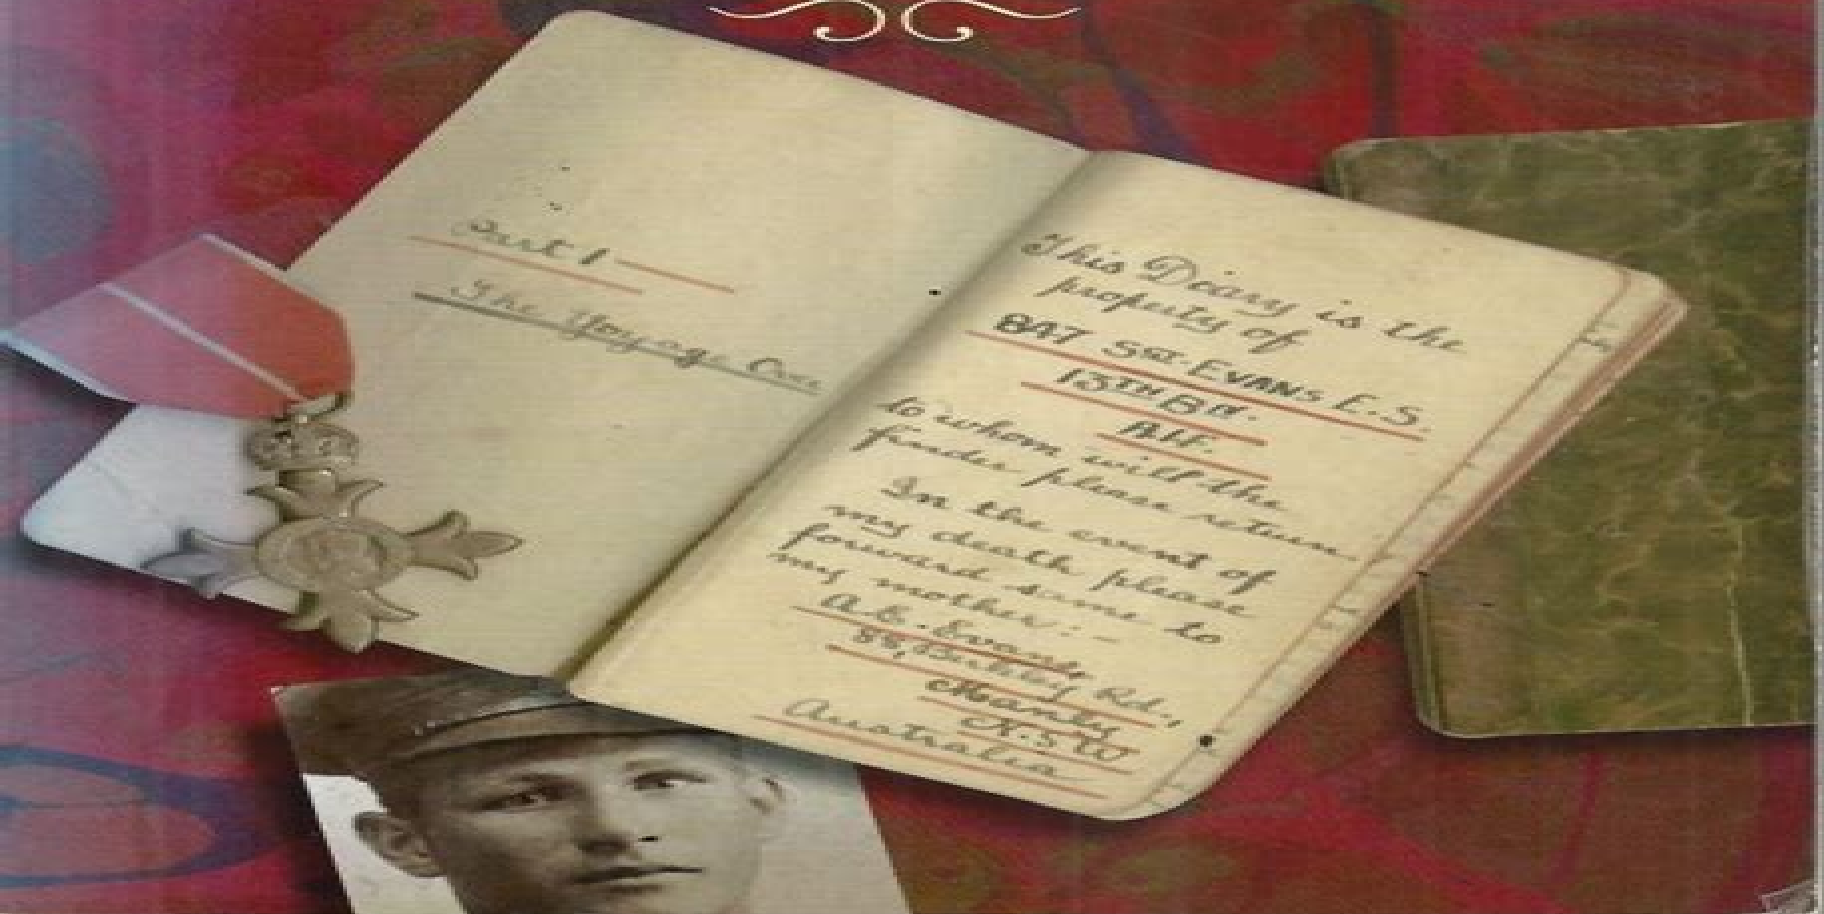 Part 1 —
The Voyage Over
This Diary is the
property of
847 Sgt. EVANS E.S.
13TH Bn.
A.I.F.
to whom will the
finder please return.
In the event of
my death please
forward same to
my mother:-
A.E. Evans,
Rd.,
Manly,
N.S.W
Australia